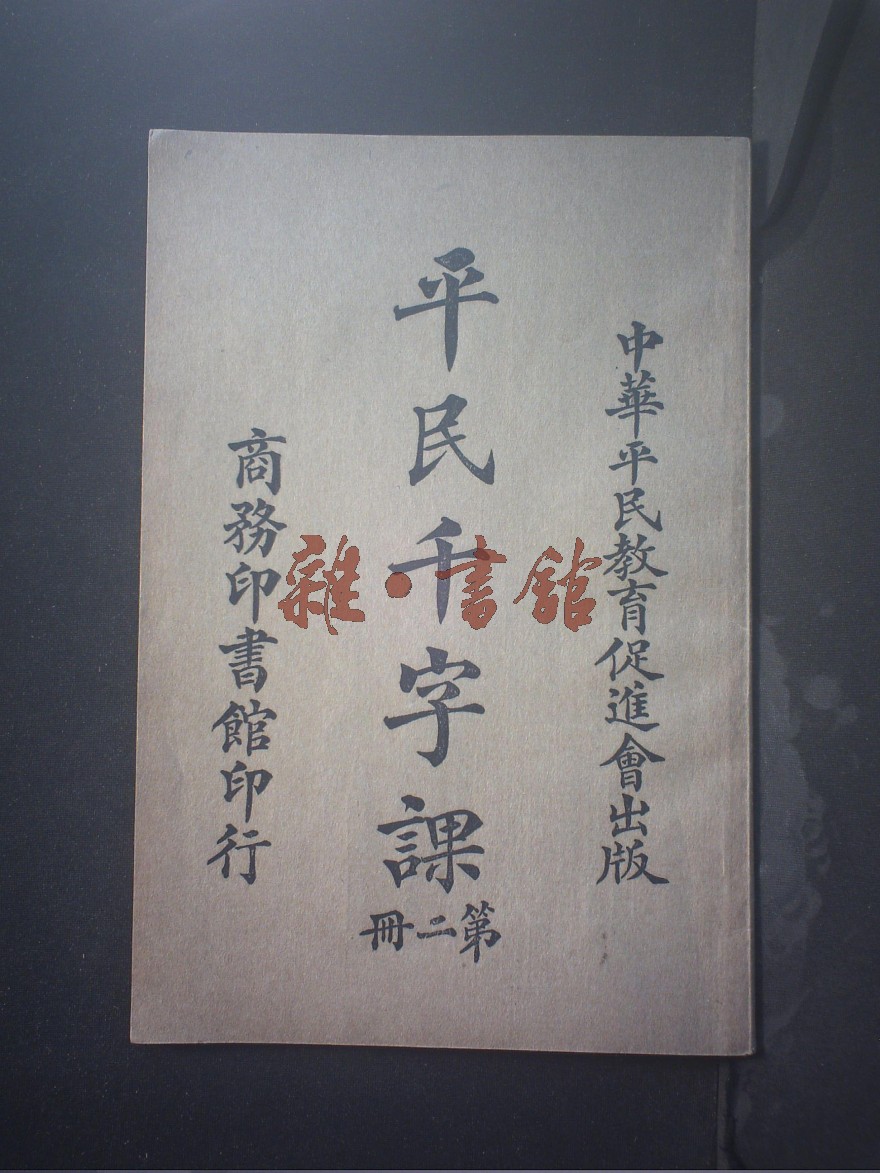 中華平民教育促進會出版
平民千字課
第二冊
商務印書館印行
雜·書館